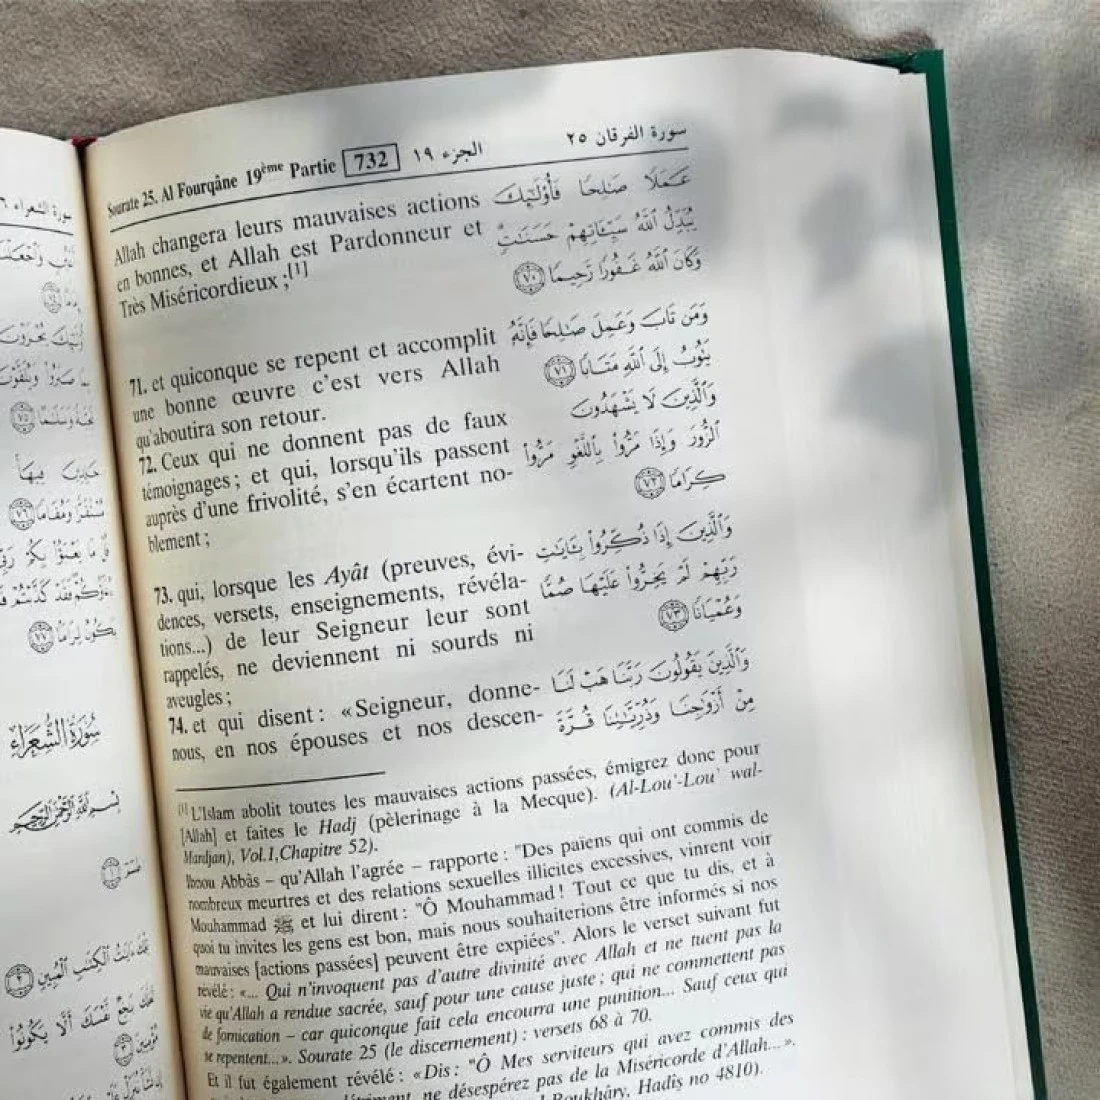 سورة الفرقان ٢٥
الجزء ١٩
732
Sourate 25. Al Fourqâne 19ème Partie
Allah changera leurs mauvaises actions
en bonnes, et Allah est Pardonneur et
Très Miséricordieux ;[1]
71. et quiconque se repent et accomplit
une bonne œuvre c'est vers Allah
qu'aboutira son retour.
72. Ceux qui ne donnent pas de faux
témoignages ; et qui, lorsqu'ils passent
auprès d'une frivolité, s'en écartent no-
blement ;
73. qui, lorsque les Ayât (preuves, évi-
dences, versets, enseignements, révéla-
tions...) de leur Seigneur leur sont
rappelés, ne deviennent ni sourds ni
aveugles ;
74. et qui disent : «Seigneur, donne-
nous, en nos épouses et nos descen-
عَمَلًا صَٰلِحًا فَأُوْلَٰٓئِكَ
يُبَدِّلُ ٱللَّهُ سَيِّـَٔاتِهِمْ حَسَنَٰتٍ
وَكَانَ ٱللَّهُ غَفُورًا رَّحِيمًا ٧٠
وَمَن تَابَ وَعَمِلَ صَٰلِحًا فَإِنَّهُۥ
يَتُوبُ إِلَى ٱللَّهِ مَتَابًا ٧١
وَٱلَّذِينَ لَا يَشْهَدُونَ
ٱلزُّورَ وَإِذَا مَرُّواْ بِٱللَّغْوِ مَرُّواْ
كِرَامًا ٧٢
وَٱلَّذِينَ إِذَا ذُكِّرُواْ بِـَٔايَٰتِ
رَبِّهِمْ لَمْ يَخِرُّواْ عَلَيْهَا صُمًّا
وَعُمْيَانًا ٧٣
وَٱلَّذِينَ يَقُولُونَ رَبَّنَا هَبْ لَنَا
مِنْ أَزْوَٰجِنَا وَذُرِّيَّٰتِنَا قُرَّةَ
[1] L'Islam abolit toutes les mauvaises actions passées, émigrez donc pour
[Allah] et faites le Hadj (pèlerinage à la Mecque). (Al-Lou'-Lou' wal-
Mardjan), Vol.1,Chapitre 52).
Ibnou Abbâs – qu'Allah l'agrée – rapporte : "Des païens qui ont commis de
nombreux meurtres et des relations sexuelles illicites excessives, vinrent voir
Mouhammad ﷺ et lui dirent : "Ô Mouhammad ! Tout ce que tu dis, et à
quoi tu invites les gens est bon, mais nous souhaiterions être informés si nos
mauvaises [actions passées] peuvent être expiées". Alors le verset suivant fut
révélé : «... Qui n'invoquent pas d'autre divinité avec Allah et ne tuent pas la
vie qu'Allah a rendue sacrée, sauf pour une cause juste ; qui ne commettent pas
de fornication – car quiconque fait cela encourra une punition... Sauf ceux qui
se repentent...». Sourate 25 (le discernement) : versets 68 à 70.
Et il fut également révélé : «Dis : "Ô Mes serviteurs qui avez commis des
ne désespérez pas de la Miséricorde d'Allah...».
Boukhâry, Hadîs no 4810).
سورة الشعراء
سُورَةُ الشُّعَرَاءِ
بِسْمِ ٱللَّهِ ٱلرَّحْمَٰنِ ٱلرَّحِيمِ
ءَايَٰتُ ٱلْكِتَٰبِ ٱلْمُبِينِ ٢
بَٰخِعٌ نَّفْسَكَ أَلَّا يَكُونُواْ
مُؤْمِنِينَ ٣